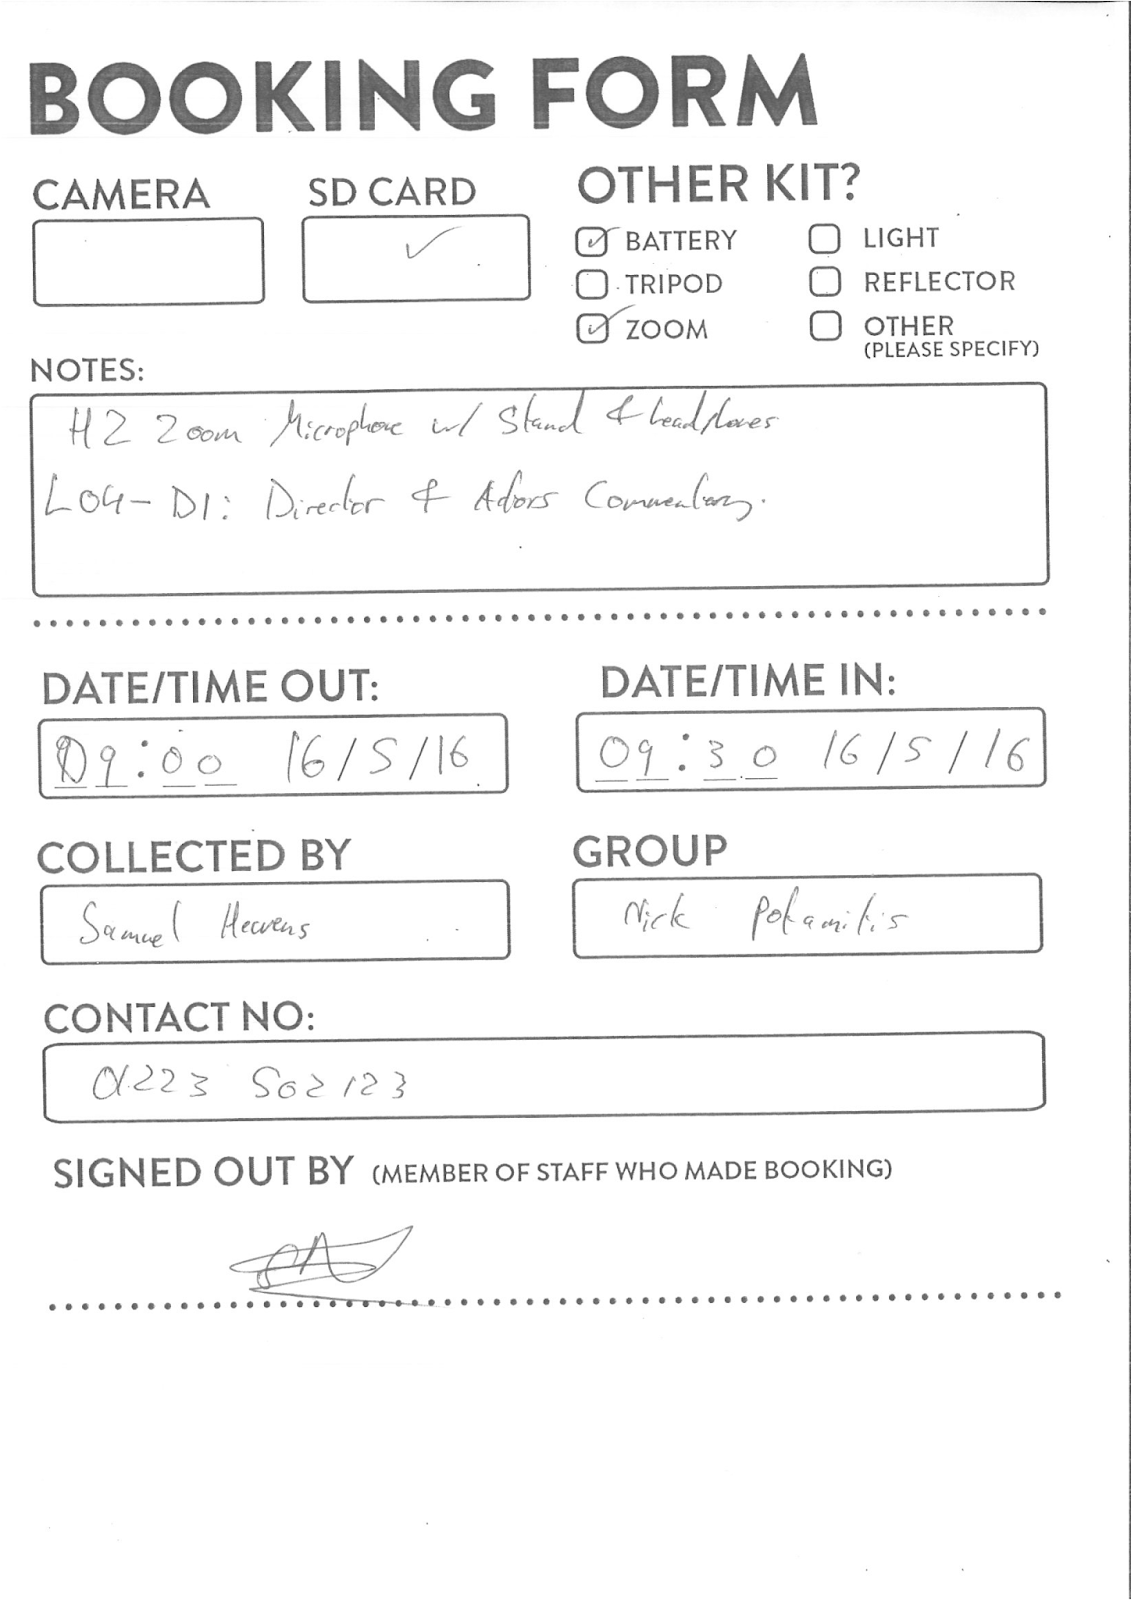 BOOKING FORM
CAMERA
SD CARD
OTHER KIT?
BATTERY
LIGHT
TRIPOD
REFLECTOR
ZOOM
OTHER
(PLEASE SPECIFY)
NOTES:
H2 Zoom Microphone w/ Stand & headphones
LO4-D1: Director & Actors Commentary.
DATE/TIME OUT:
DATE/TIME IN:
09:00 16/5/16
09:30 16/5/16
COLLECTED BY
GROUP
Samuel Heavens
Nick Potamitis
CONTACT NO:
01223 502123
SIGNED OUT BY (MEMBER OF STAFF WHO MADE BOOKING)